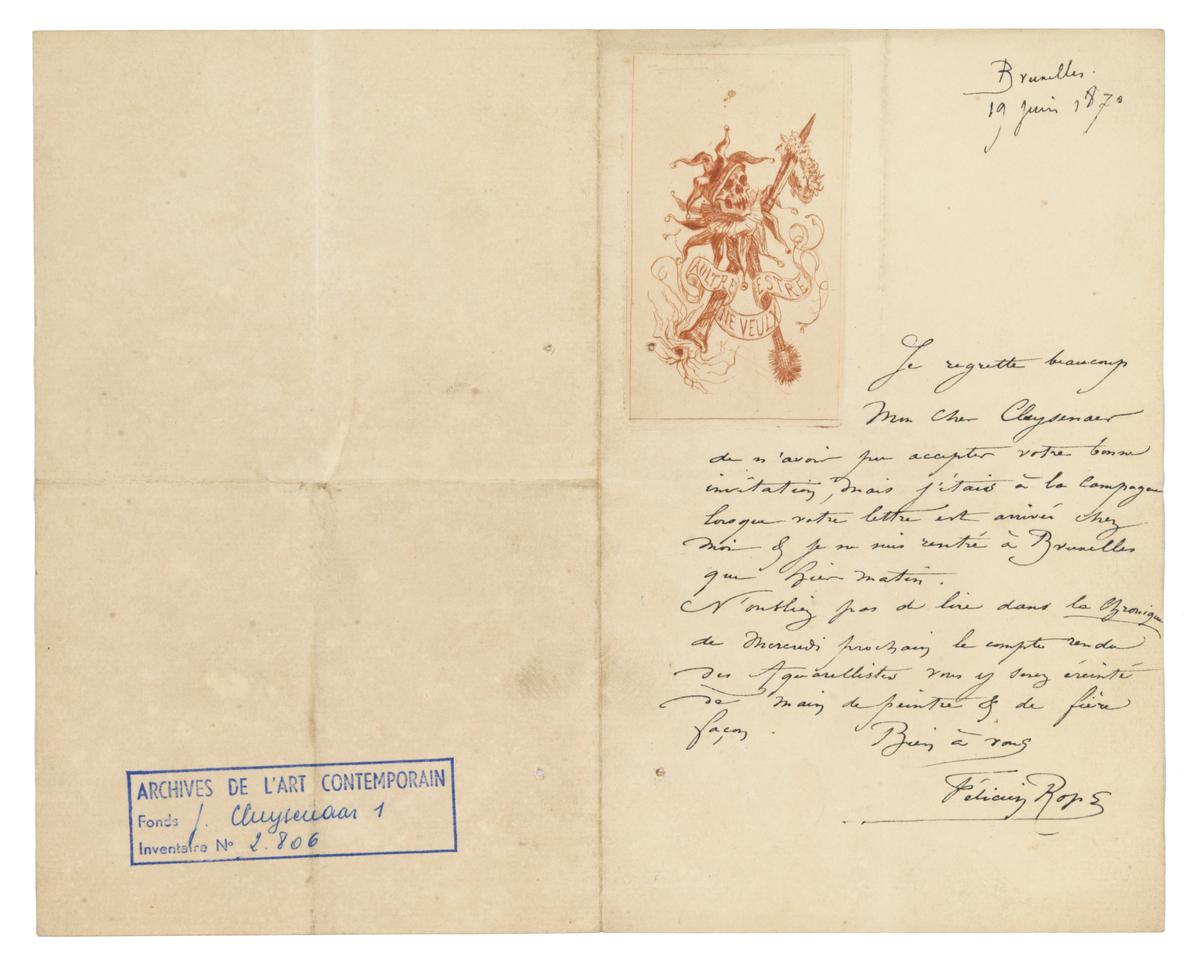 Bruxelles.
19 juin 1870
AULTRE ESTRE
NE VEULX
Je regrette beaucoup
Mon cher Cluysenaer
de n'avoir pu accepter votre bonne
invitation, mais j'étais à la Campagne
lorsque votre lettre est arrivée chez
moi & je ne suis rentré à Bruxelles
que hier matin.
N'oubliez pas de lire dans la Chronique
de Mercredi prochain le compte rendu
des Aquarellistes vous y serez éreinté
de main de peintre & de fière
façon.
Bien à vous
Félicien Rops
ARCHIVES DE L'ART CONTEMPORAIN
Fonds J. Cluysenaar 1
Inventaire N° 2.806